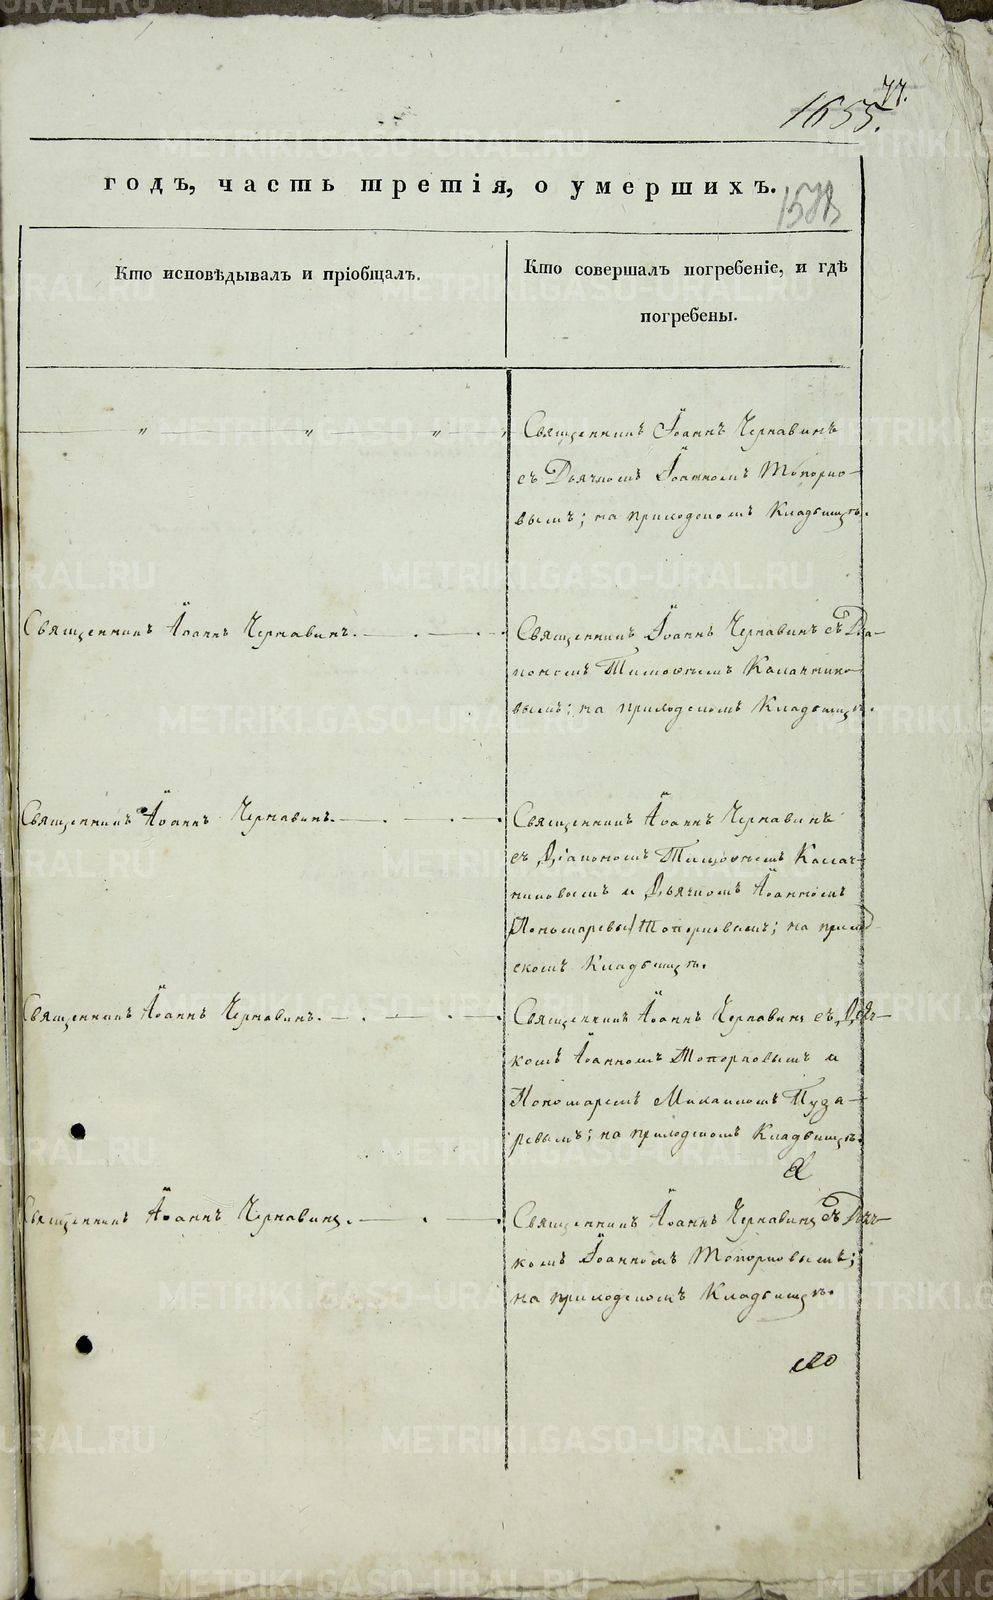 77.
1655.
годъ, часть третія, о умершихъ.
Кто исповѣдывалъ и пріобщалъ.
Кто совершалъ погребеніе, и гдѣ
погребены.
" " " "
Священникъ Іоаннъ Чернавинъ
съ Дьячкомъ Іоанномъ Топорко-
вымъ; на приходскомъ Кладбищѣ.
Священникъ Іоаннъ Чернавинъ.
Священникъ Іоаннъ Чернавинъ съ Діа-
кономъ Тимоѳеемъ Калачнико-
вымъ; на приходскомъ Кладбищѣ.
Священникъ Іоаннъ Чернавинъ.
Священникъ Іоаннъ Чернавинъ
съ Діакономъ Тимоѳеемъ Калач-
никовымъ и Дьячкомъ Іоанномъ
Топорковымъ; на приход-
скомъ Кладбищѣ.
Священникъ Іоаннъ Чернавинъ.
Священникъ Іоаннъ Чернавинъ съ Дьяч-
комъ Іоанномъ Топорковымъ и
Пономаремъ Михаиломъ Пуза-
ревымъ; на приходскомъ Кладбищѣ.
Священникъ Іоаннъ Чернавинъ.
Священникъ Іоаннъ Чернавинъ съ Дьяч-
комъ Іоанномъ Топорковымъ;
на приходскомъ Кладбищѣ.
METRIKI.GASO-URAL.RU